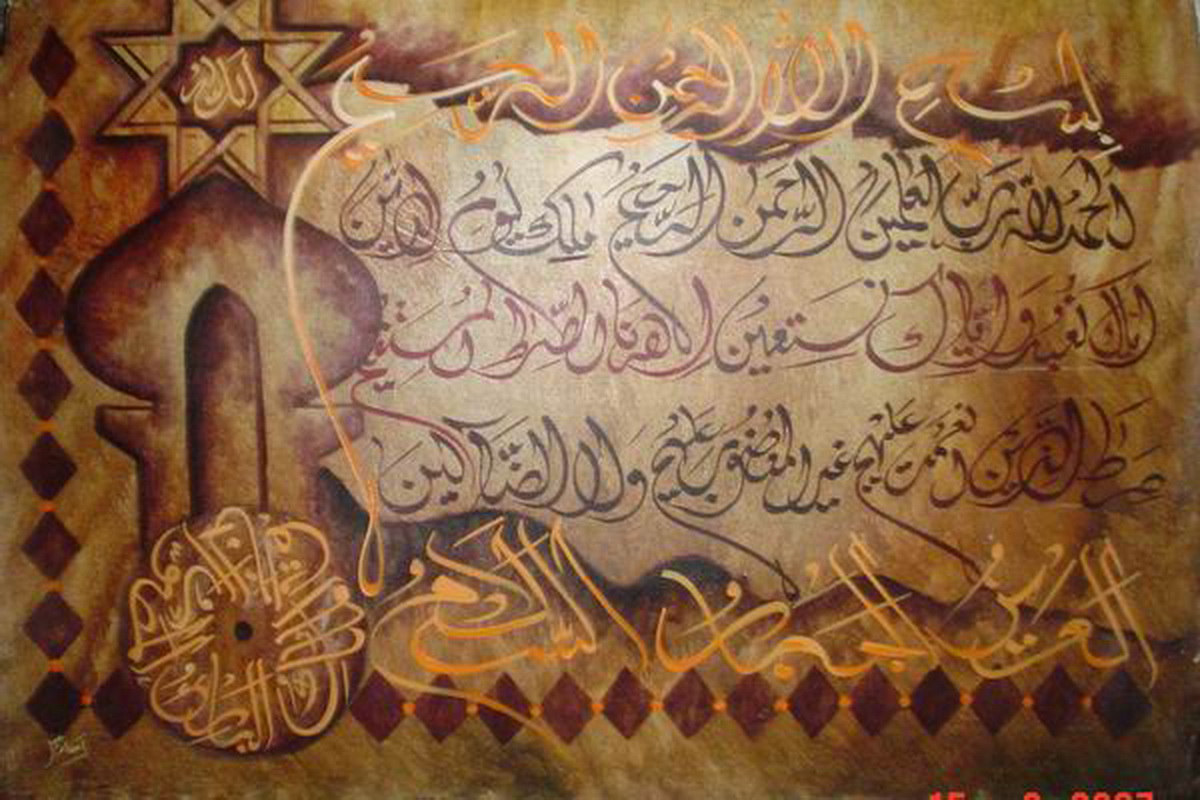 الله
بسم الله الرحمن الرحيم
الحمد لله رب العلمين الرحمن الرحيم ملك يوم الدين
اياك نعبد واياك نستعين اهدنا الصراط المستقيم
صرط الذين انعمت عليهم غير المغضوب عليهم ولا الضالين
العزيز الجبار السلام